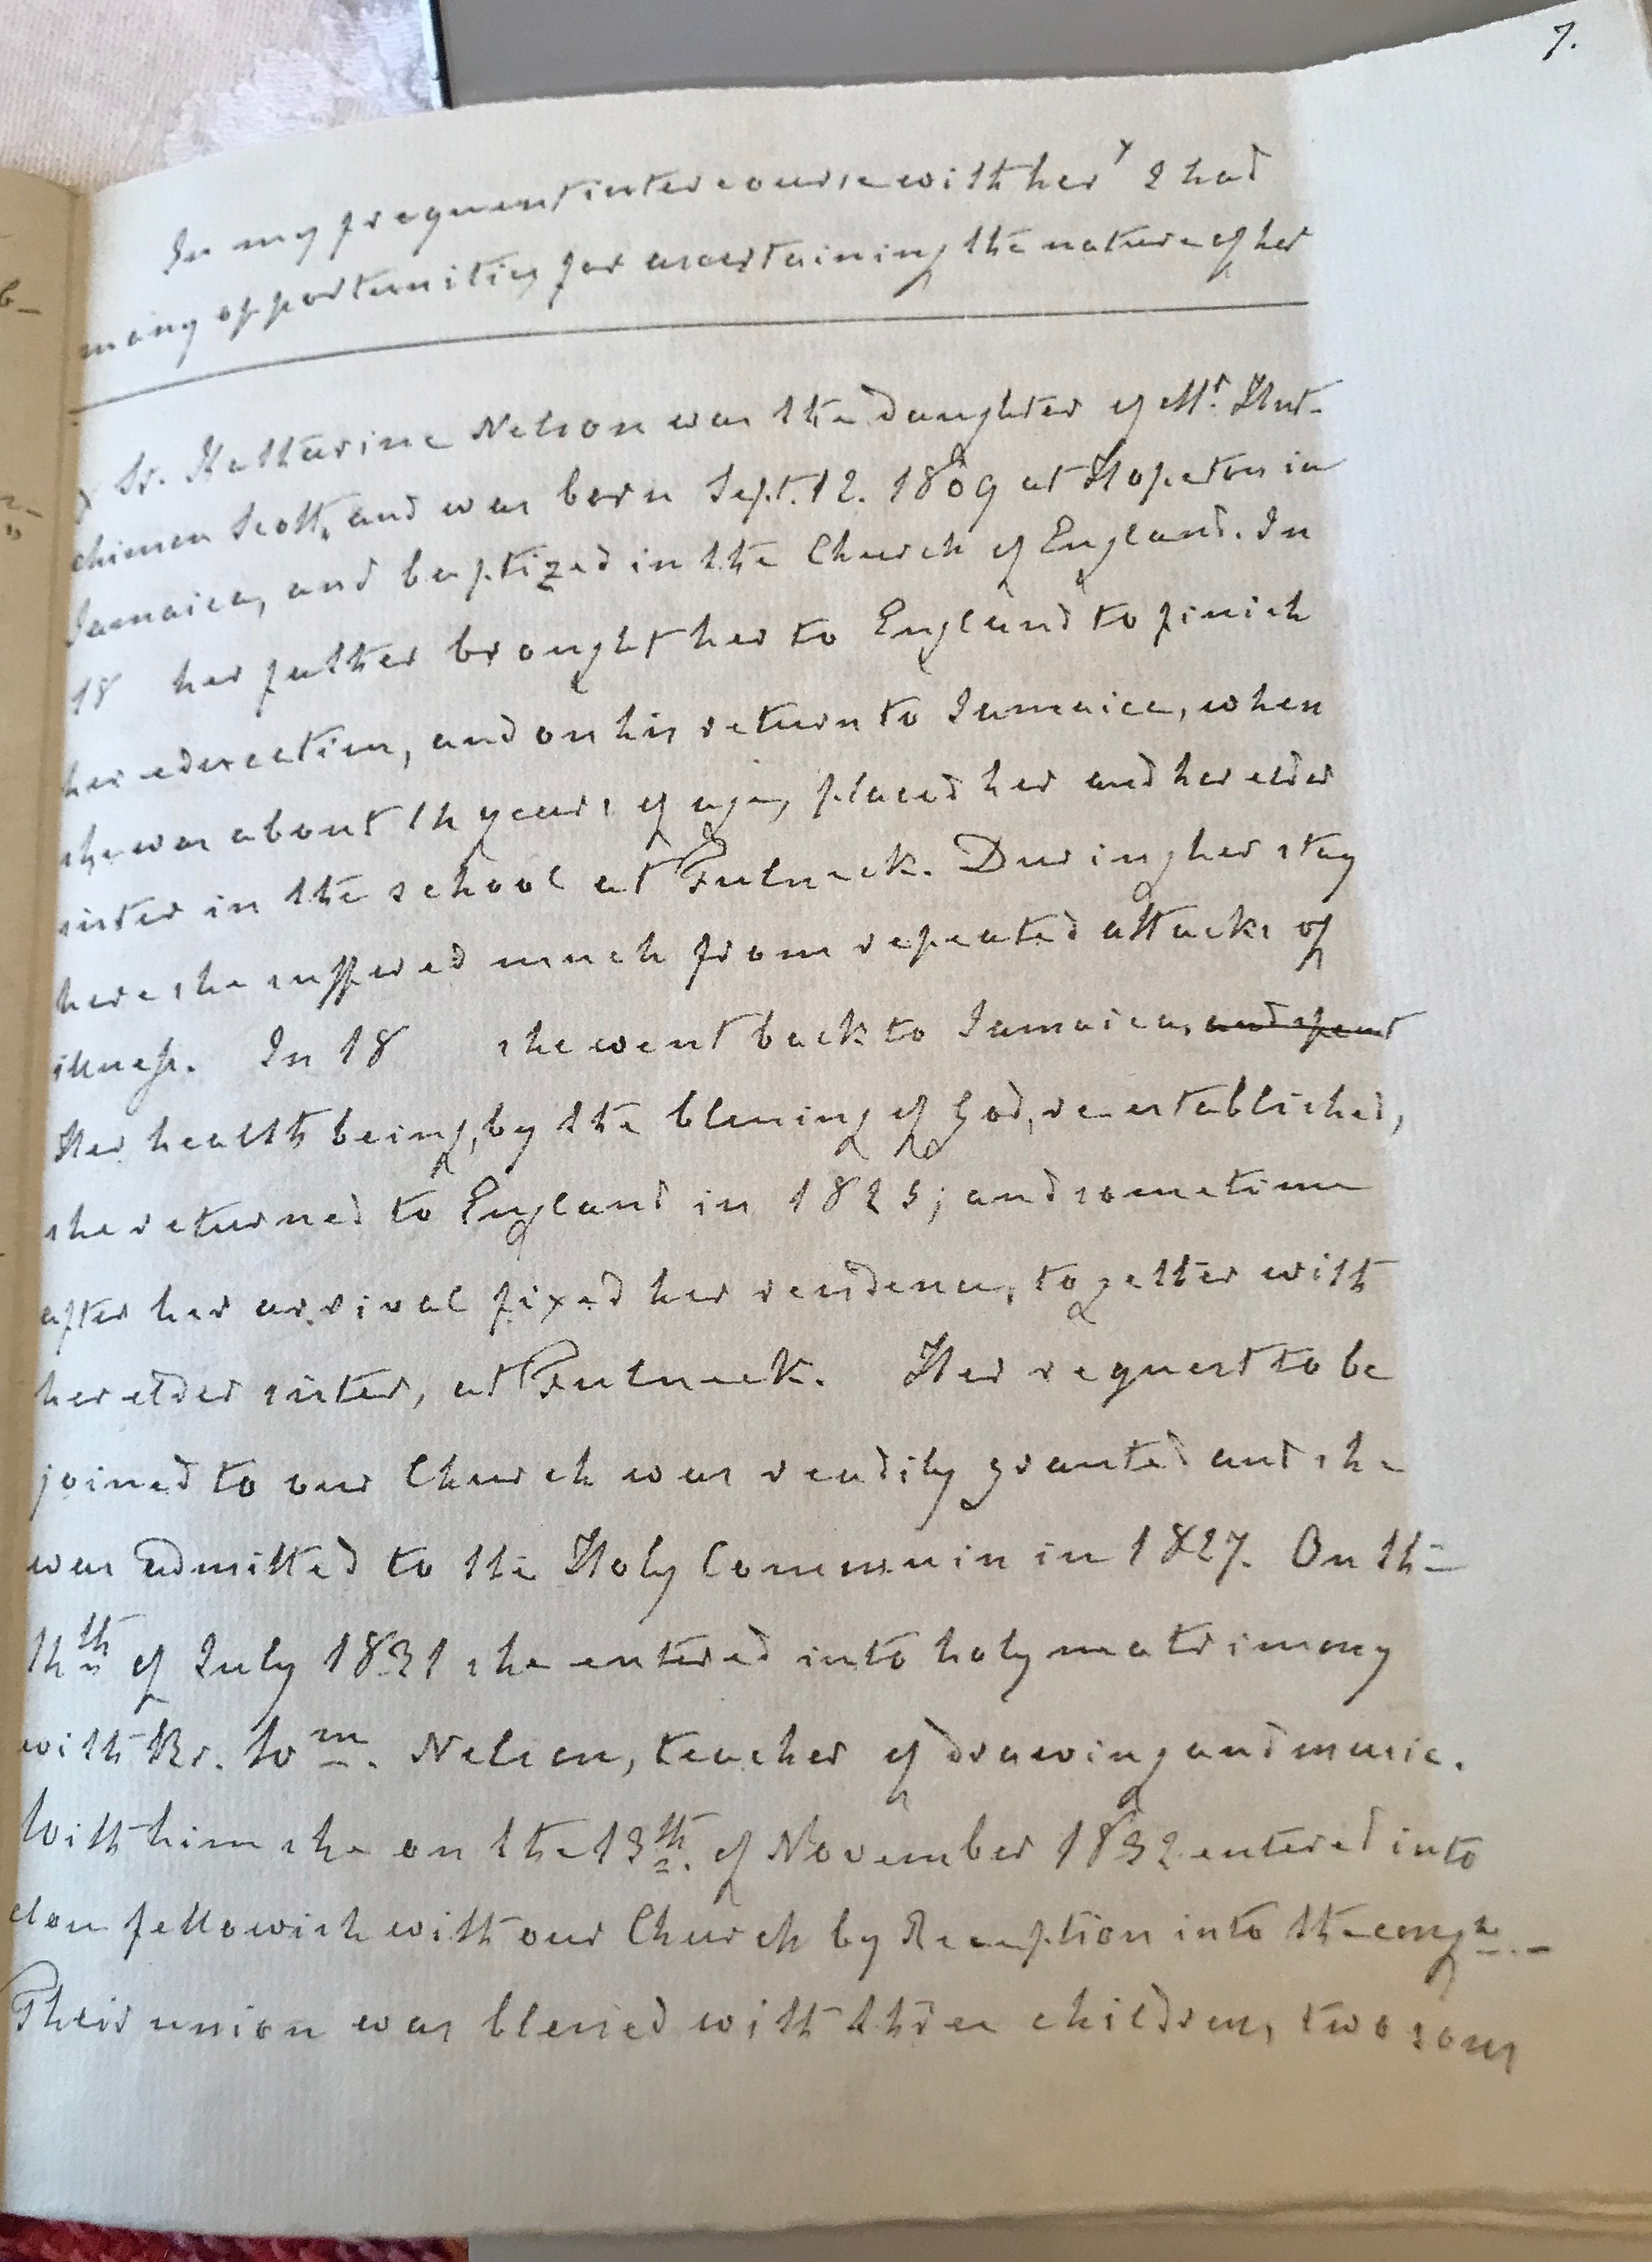 7.
In my frequent intercourse with her x I had
many opportunities for ascertaining the nature of her
Sr. Katharine Nelson was the daughter of Mr. Hut-
chinson Scott, and was born Sept. 12. 1809 at Hopeton in
Jamaica, and baptized in the Church of England. In
18 her father brought her to England to finish
her education, and on his return to Jamaica, when
she was about 14 years of age, placed her and her elder
sister in the school at Fulneck. During her stay
here she suffered much from repeated attacks of
illness. In 18 she went back to Jamaica, and spent
Her health being, by the blessing of God, re-established,
she returned to England in 1825; and sometime
after her arrival fixed her residence, together with
her elder sister, at Fulneck. Her request to be
joined to our Church was readily granted and she
was admitted to the Holy Communin in 1827. On the
14th of July 1831 she entered into holy matrimony
with Br. Wm. Nelson, teacher of drawing and music.
With him she on the 13th. of November 1832 entered into
closer fellowish with our Church by Reception into the congn. -
Their union was blessed with three children, two sons